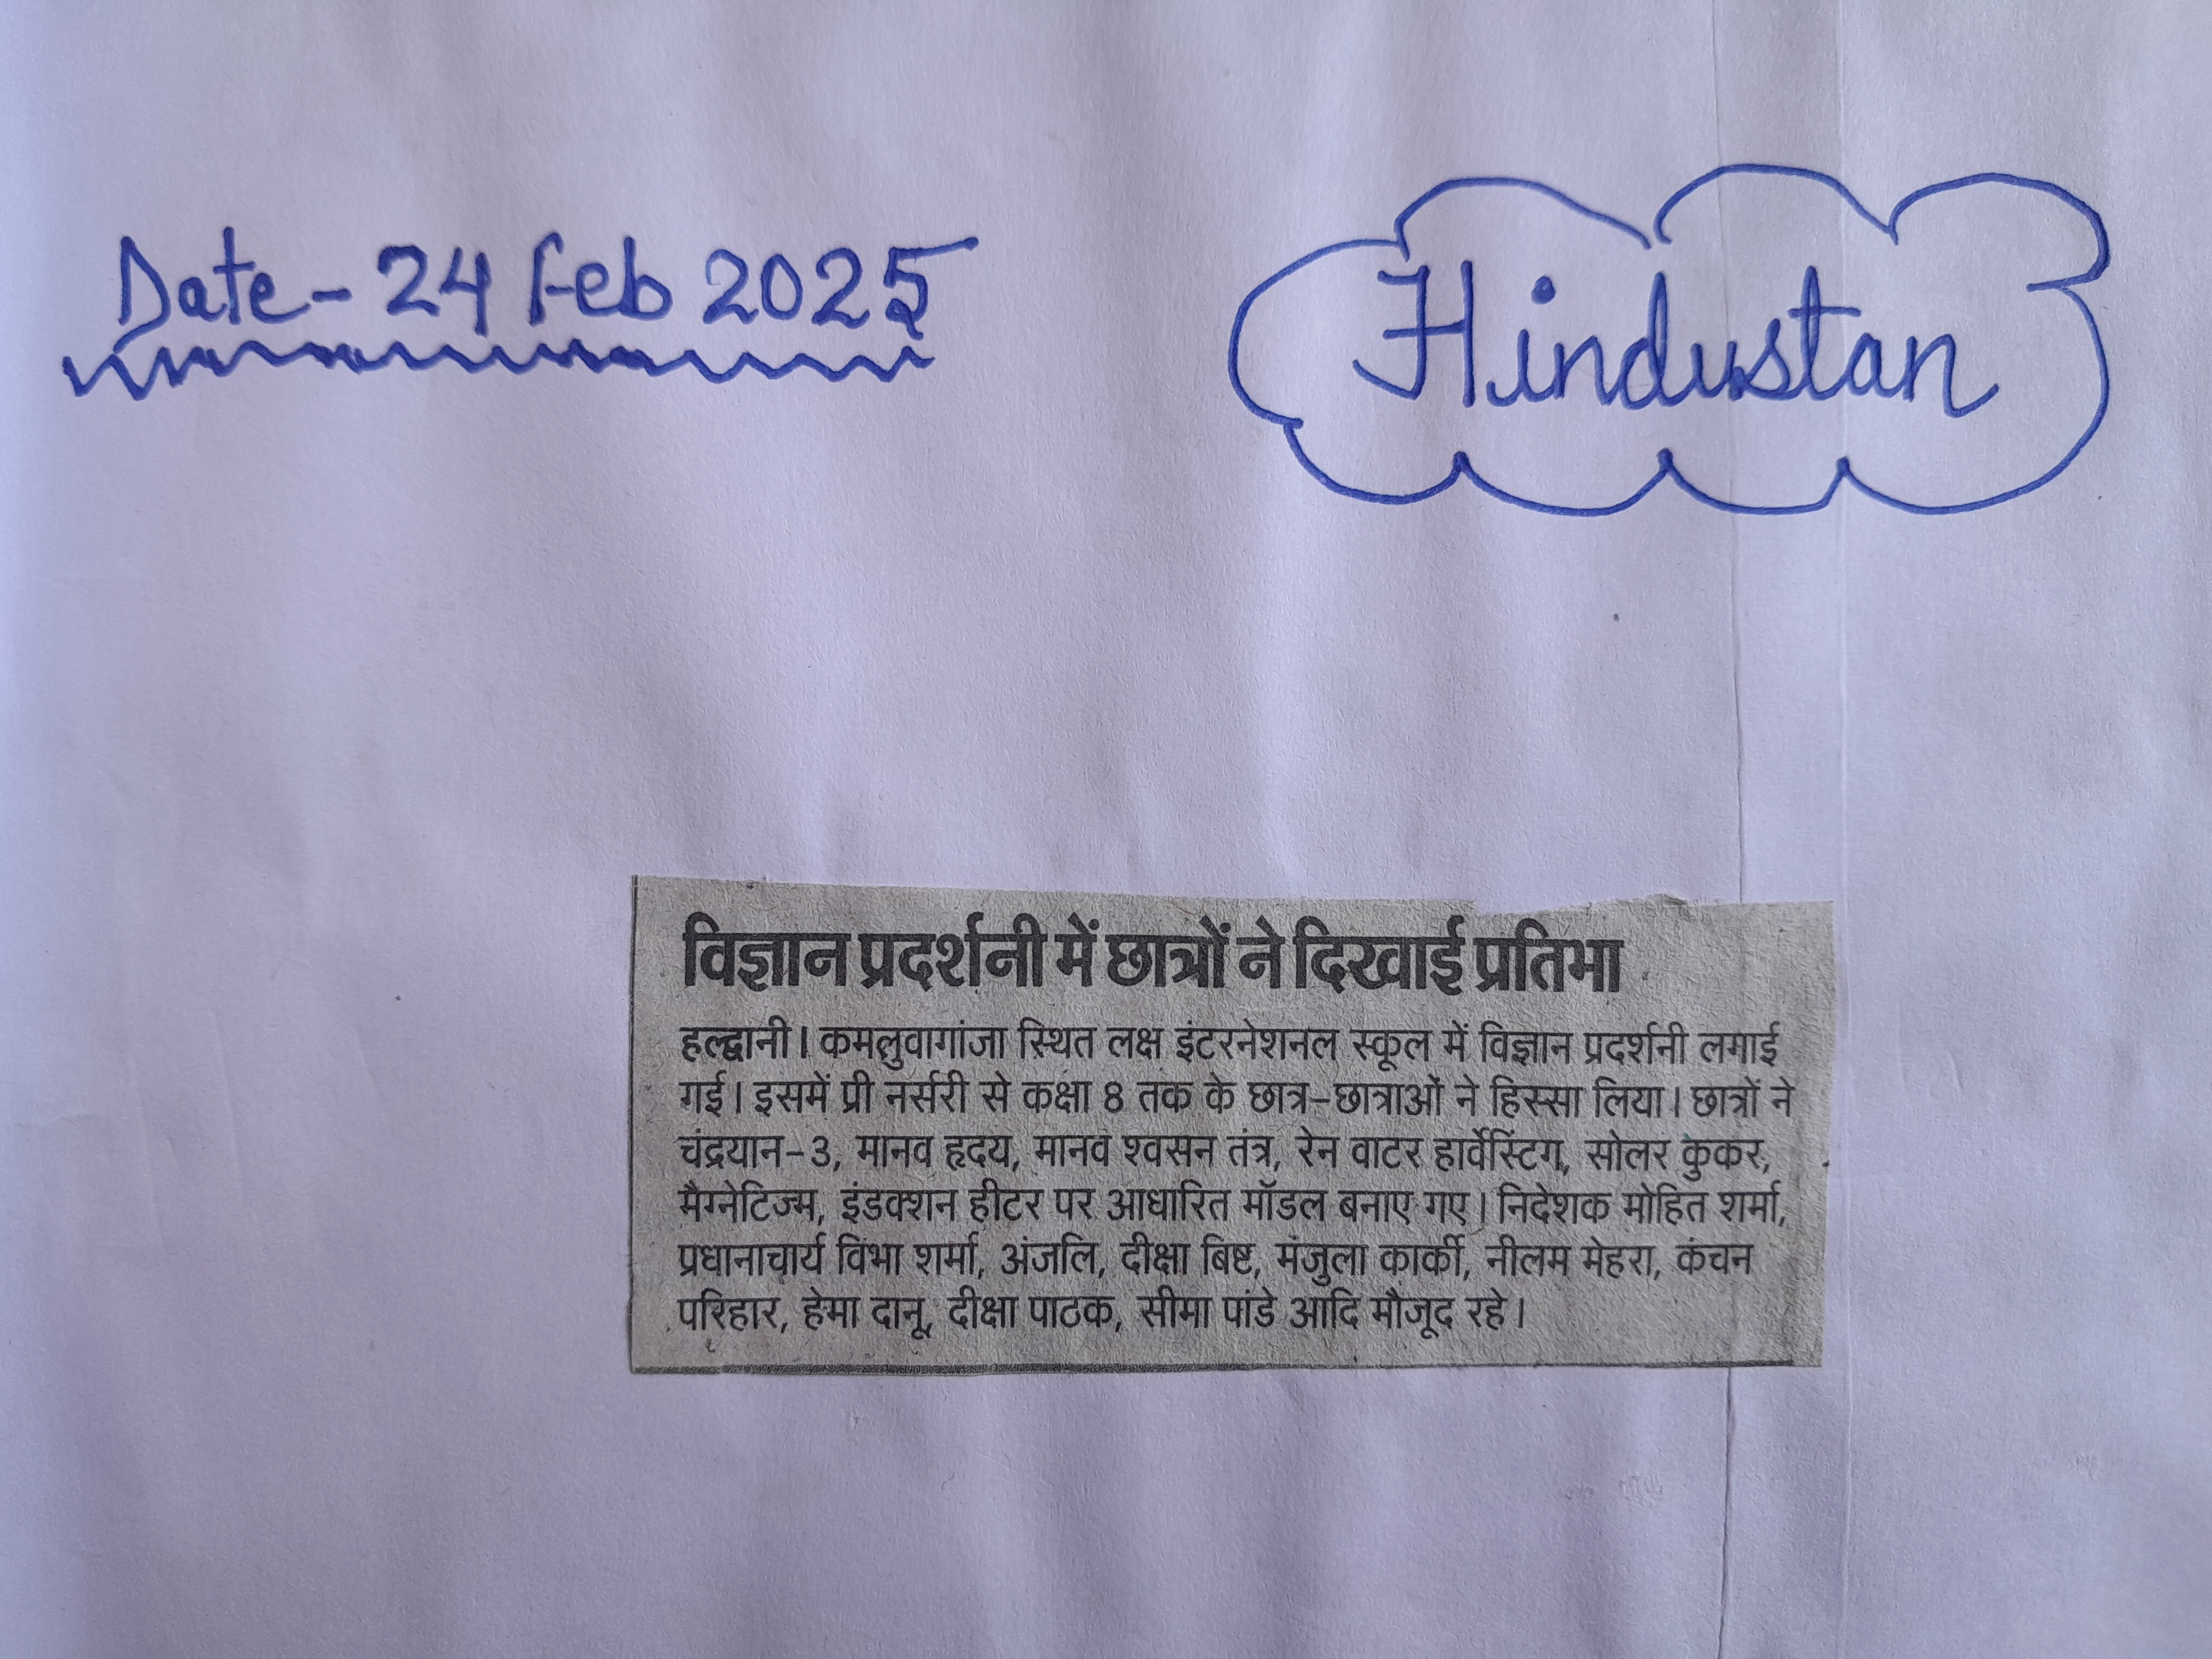 Date - 24 Feb 2025
Hindustan
विज्ञान प्रदर्शनी में छात्रों ने दिखाई प्रतिभा
हल्द्वानी। कमलुवागांजा स्थित लक्ष इंटरनेशनल स्कूल में विज्ञान प्रदर्शनी लगाई
गई। इसमें प्री नर्सरी से कक्षा 8 तक के छात्र-छात्राओं ने हिस्सा लिया। छात्रों ने
चंद्रयान-3, मानव हृदय, मानव श्वसन तंत्र, रेन वाटर हार्वेस्टिंग, सोलर कुकर,
मैग्नेटिज्म, इंडक्शन हीटर पर आधारित मॉडल बनाए गए। निदेशक मोहित शर्मा,
प्रधानाचार्य विभा शर्मा, अंजलि, दीक्षा बिष्ट, मंजुला कार्की, नीलम मेहरा, कंचन
परिहार, हेमा दानू, दीक्षा पाठक, सीमा पांडे आदि मौजूद रहे।